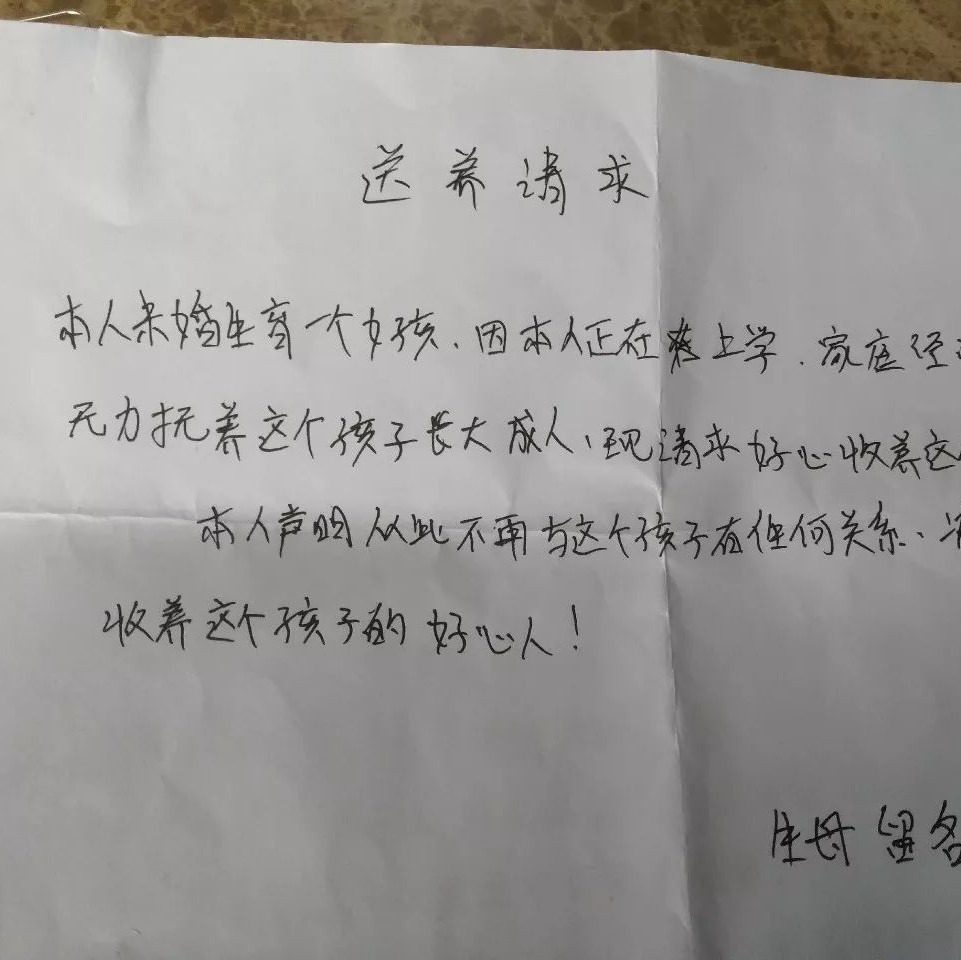 送养请求
本人未婚生育一个女孩、因本人正在上学、家庭经
无力抚养这个孩子长大成人、现请求好心收养这
本人声明从此不再与这个孩子有任何关系、
收养这个孩子的好心人!
生母留名